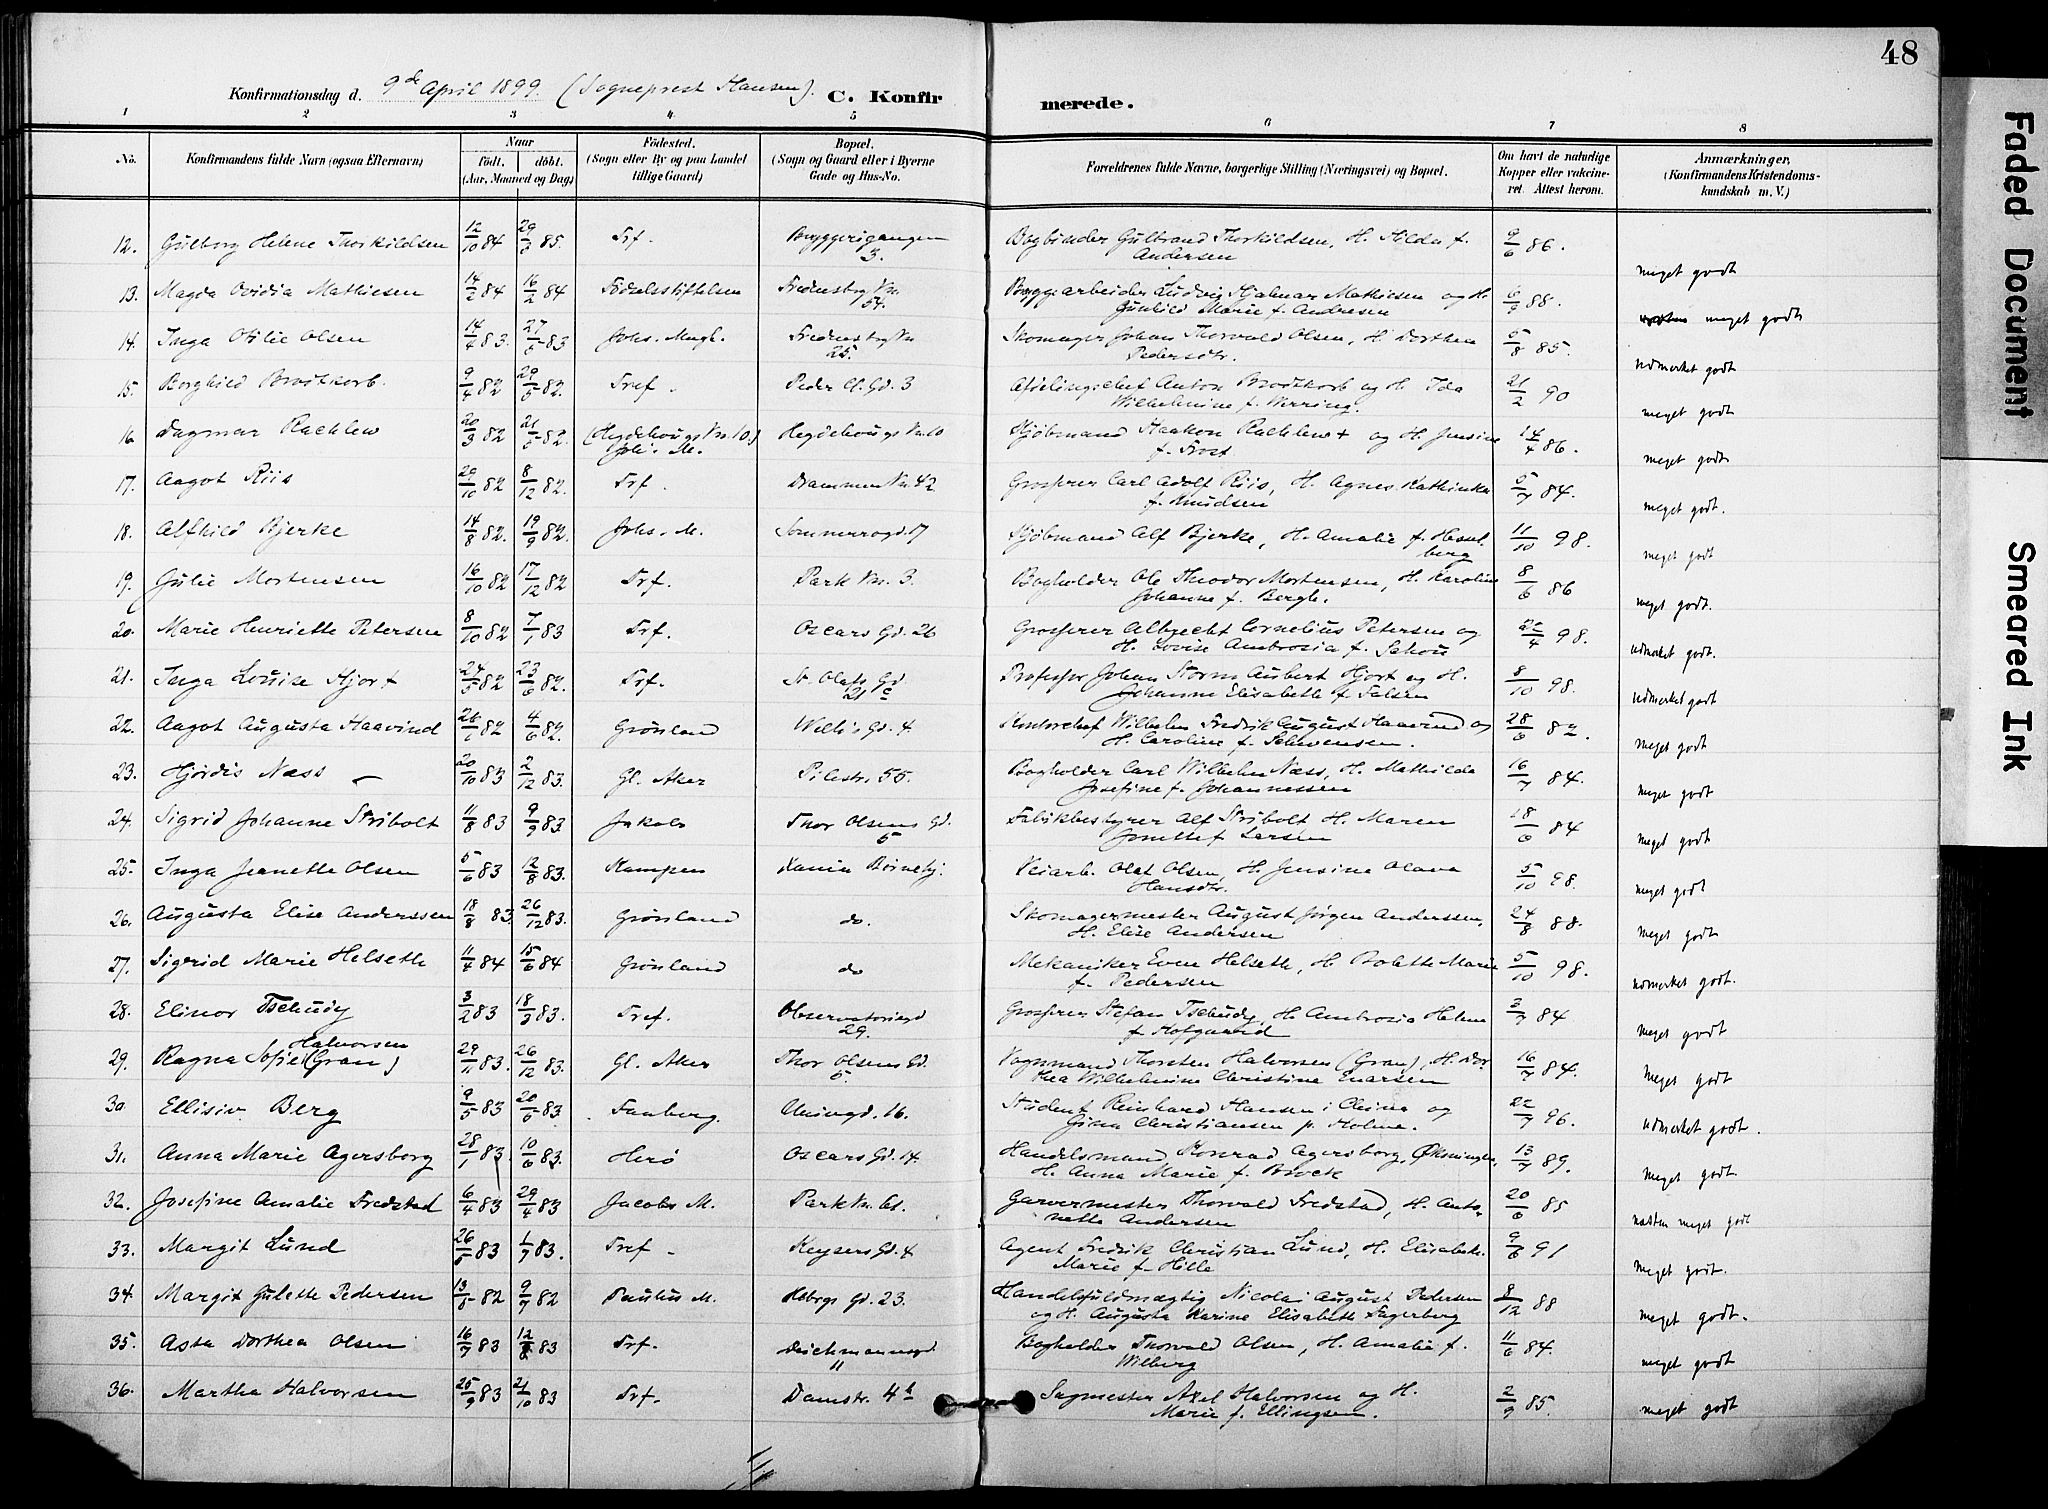 48
Konfirmationsdag d. 9de April 1899 (Sogneprest Hansen). C. Konfirmerede.
1 2 3 4 5 6 7 8
No. Konfirmandens fulde Navn (ogsaa Efternavn) Naar født. døbt. (Aar, Maaned og Dag) Fødested. (Sogn eller By og paa Landet tillige Gaard) Bopæl. (Sogn og Gaard eller i Byerne Gade og Hus-No. Forældrenes fulde Navne, borgerlige Stilling (Næringsvei) og Bopæl. Om havt de naturlige Kopper eller vakcineret. Attest herom. Anmærkninger, (Konfirmandens Kristendomskundskab m. V.)
12. Gulborg Helene Thorkildsen 12/10 84 85. Trf. Bryggerigangen 3. Bogbinder Gulbrand Thorkildsen, H. Hilda f. Andersen 9/6 86. meget godt
13. Magda Ovidia Mathiesen 14/2 84 16/2 84 Fødselsstiftelsen Fredensborgvn. 54. Bryggearbeider Ludvig Hjalmar Mathiesen og H. Gunhild Marie f. Andresen 6/9 88. meget godt
14. Inga Otilie Olsen 14/4 83. 27/5 83 Johs. Mngh. Fredensborgvn 25. Skomager Johan Thorvald Olsen, H. Dorthea Pedersdtr. 5/8 85. udmerket godt
15. Borghild Brodtkorb. 9/4 82 29/5 82. Tref. Peder Cl. Gd. 3 Afdelingschef Anton Brodtkorb og H. Ida Wilhelmine f. Werring. 21/2 90 meget godt
16. Dagmar Rachlew 20/3 82 21/5 82. (Hegdehougs Vn. 10) Joh. M. Hegdehougs Vn. 10 Kjøbmand Haakon Rachlew + og H. Jensine f. Frost 14/4 86. meget godt
17. Aagot Riis 29/10 82 8/12 82. Trf. Drammen Vn. 42 Grosserer Carl Adolf Riis, H. Agnes Kathinka f. Knudsen 5/7 84. meget godt.
18. Alfhild Bjerke 14/8 82. 19/9 82. Johs. M. Sommerrogd. 17 Kjøbmand Alf Bjerke, H. Amalie f. Hesselberg 11/10 98. meget godt
19. Julie Mortensen 16/10 82 17/12 82 Trf. Park Vn. 3. Bogholder Ole Theodor Mortensen, H. Karoline Johanne f. Bergh. 8/6 86 meget godt.
20. Marie Henriette Petersen 8/10 82 7/1 83 Trf. Oscars Gd. 26 Grosserer Albrecht Cornelius Petersen og H. Lovise Ambrosia f. Schou 22/4 98. udmerket godt.
21. Inga Louise Hjort 24/5 82 23/6 82. Trf. St. Olafs Gd 21 c Professor Johan Storm Aubert Hjort og H. Johanne Elisabeth f. Falsen 8/10 98. udmerket godt
22. Aagot Augusta Haavind 26/1 82 4/6 82. Grønland Welh's Gd. 4 Kontorchef Wilhelm Fredrik August Haavind og H. Caroline f. 28/6 82. meget godt
23. Hjørdis Næss 20/10 83 2/12 83. Gl. Aker Pilestr. 55. Bogholder Carl Wilhelm Næss, H. Mathilde Josefine f. Johannessen 16/7 84. meget godt
24. Sigrid Johanne Stribolt 11/8 83 9/9 83. Jakobs Thor Olsens Gd. 5 Fabrikbestyrer Alf Stribolt H. Maren Jonette f. Larsen 18/6 84 meget godt
25. Inga Jeanette Olsen 5/6 83 12/8 83. Kampen Xania Børnehj. Veiarb. Olaf Olsen, H. Jensine Olava Hansdtr. 5/10 98. meget godt
26. Augusta Elise Anderssen 18/8 83. 26/12 83. Grønland do. Skomagermester August Jørgen Anderssen, H. Elise Andersen 24/8 88. meget godt
27. Sigrid Marie Helseth 11/4 84 15/6 84 Grønland do Mekaniker Even Helseth, H. Bolette Marie f. Pedersen 5/10 98. udmerket godt.
28. Elinor Tschudy 3/2 83 18/3 83. Tref. Observatoriegd 29. Grosserer Stefan Tschudy, H. Ambrosia Helene f. Hofgaard 3/7 84 meget godt
29. Ragna Sofie Halvorsen (Gran) 29/11 83. 26/12 83. Gl. Aker Thor Olsens Gd. 5. Vognmand Thorsten Halvorsen (Gran), H. Dorthea Wilhelmine Christine Enersen 16/7 84. meget godt
30. Ellisiv Berg 9/5 83 20/5 83. Faaberg. Uniongd. 16. Student Reinhard Hansen i China og Gina Christiansen p. Holme. 22/7 96. udmerket godt.
31. Anna Marie Agersborg 28/1 83. 10/6 83. Herø Oscars Gd. 14. Handelsmand Konrad Agersborg, Øksningen, H. Anna Marie f. Brock 13/7 89. meget godt
32. Josefine Amalie Fredstad 6/4 83 29/4 83 Jacobs M. Park Vn. 6b. Garvermester Thorvald Fredstad, H. Antonette Andersen 20/6 85 næsten meget godt
33. Margit Lund 26/5 83 1/7 83. Tref. Keysers Gd. 4 Agent Fredrik Christian Lund, H. Elisabeth Marie f. Hille 9/6 91 meget godt.
34. Margit Gulette Pedersen 13/5 82 9/7 82 Paulus M. Holbergs Gd. 23. Handelsfuldmægtig Nicolai August Pedersen og H. Augusta Karine Elisabeth Fagerberg 8/12 88 meget godt.
35. Asta Dorthea Olsen 16/7 83 12/8 83 Trf. Deichmannsgd 11 Bogholder Thorvald Olsen, H. Amalie f. Wilberg 11/6 84. meget godt
36. Martha Halvorsen 25/9 83 21/10 83 Trf. Damstr. 4 b Sagmester Axel Halvorsen og H. Marie f. Ellingsen. 2/9 85. meget godt
Faded Document
Smeared Ink